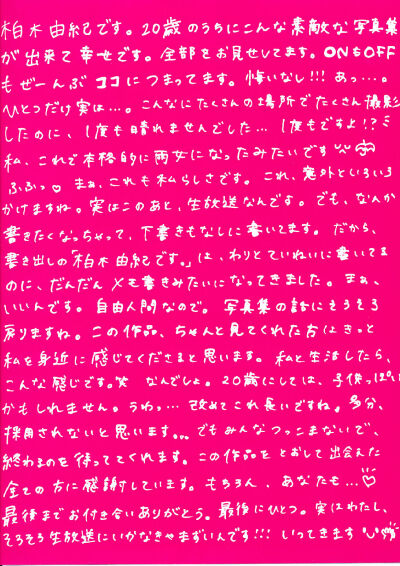 柏木由紀です。20歳のうちにこんな素敵な写真集
が出来て幸せです。全部をお見せしてます。ONもOFF
もぜーんぶココにつまってます。悔いなし!!! あっ…。
ひとつだけ実は…。こんなにたくさんの場所でたくさん撮影
したのに、1度も晴れませんでした… 1度もですよ!?
私、これで本格的に雨女になったみたいです
ふふっ♡ まぁ、これも私らしさです。これ、意外といろいろ
かけますね。実はこのあと、生放送なんです。でも、なんか
書きたくなっちゃって、下書きもなしに書いてます。だから、
書き出しの「柏木由紀です。」は、わりとていねいに書いてる
のに、だんだんメモ書きみたいになってきました。まぁ、
いいんです。自由人間なので。写真集の話にそろそろ
戻りますね。この作品、ちゃんと見てくれた方はきっと
私を身近に感じてくださると思います。私と生活したら、
こんな感じです。笑 なんでしょ。20歳にしては、子供っぽい
かもしれません。うわっ… 改めてこれ長いですね。多分、
採用されないと思います。。。でもみんなつっこまないで、
終わるのを待っててくれます。この作品をとおして出会えた
全ての方に感謝しています。もちろん、あなたも…♡
最後までお付き合いありがとう。最後にひとつ。実はわたし、
そろそろ生放送にいかなきゃまずいんです!!! いってきます